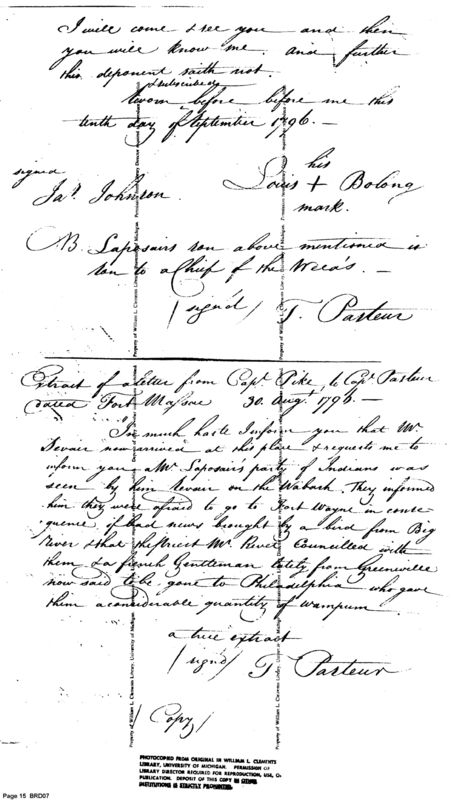 I will come & see you and then
you will know me. and further
this deponent saith not.
& subscribed
Sworn before before me this
tenth day of September 1796. —
signed
Jas. Johnson
his
Louis + Bolong
mark.
NB. Laposairs son above mentioned is
son to a Chief of the Weea's. —
/signed/ T. Pasteur
Extract of a letter from Capt. Pike, to Capt. Pasteur
dated Fort Massac 30. Augt. 1796. —
In much haste Inform you that Mr.
now arrived at this place & requests me to
inform you a Mr. Laposairs party of Indians was
seen by him on the Wabach. They informed
him they were afraid to go to Fort Wayne in conse-
quence of bad news brought by a bird from Big
River & that the Priest Mr. Rivet Councilled with
them & a french Gentleman lately from Greenville
now said to be gone to Philadelphia who gave
them a considerable quantity of wampum.
a true extract
/signd/ T. Pasteur
/Copy/
Property of William L. Clements Library, University of Michigan.
PHOTOCOPIED FROM ORIGINAL IN WILLIAM L. CLEMENTS
LIBRARY, UNIVERSITY OF MICHIGAN. PERMISSION OF
LIBRARY DIRECTOR REQUIRED FOR REPRODUCTION, USE, OR
PUBLICATION. DEPOSIT OF THIS COPY IN OTHER
INSTITUTIONS IS STRICTLY PROHIBITED.
Page 15 BRD07